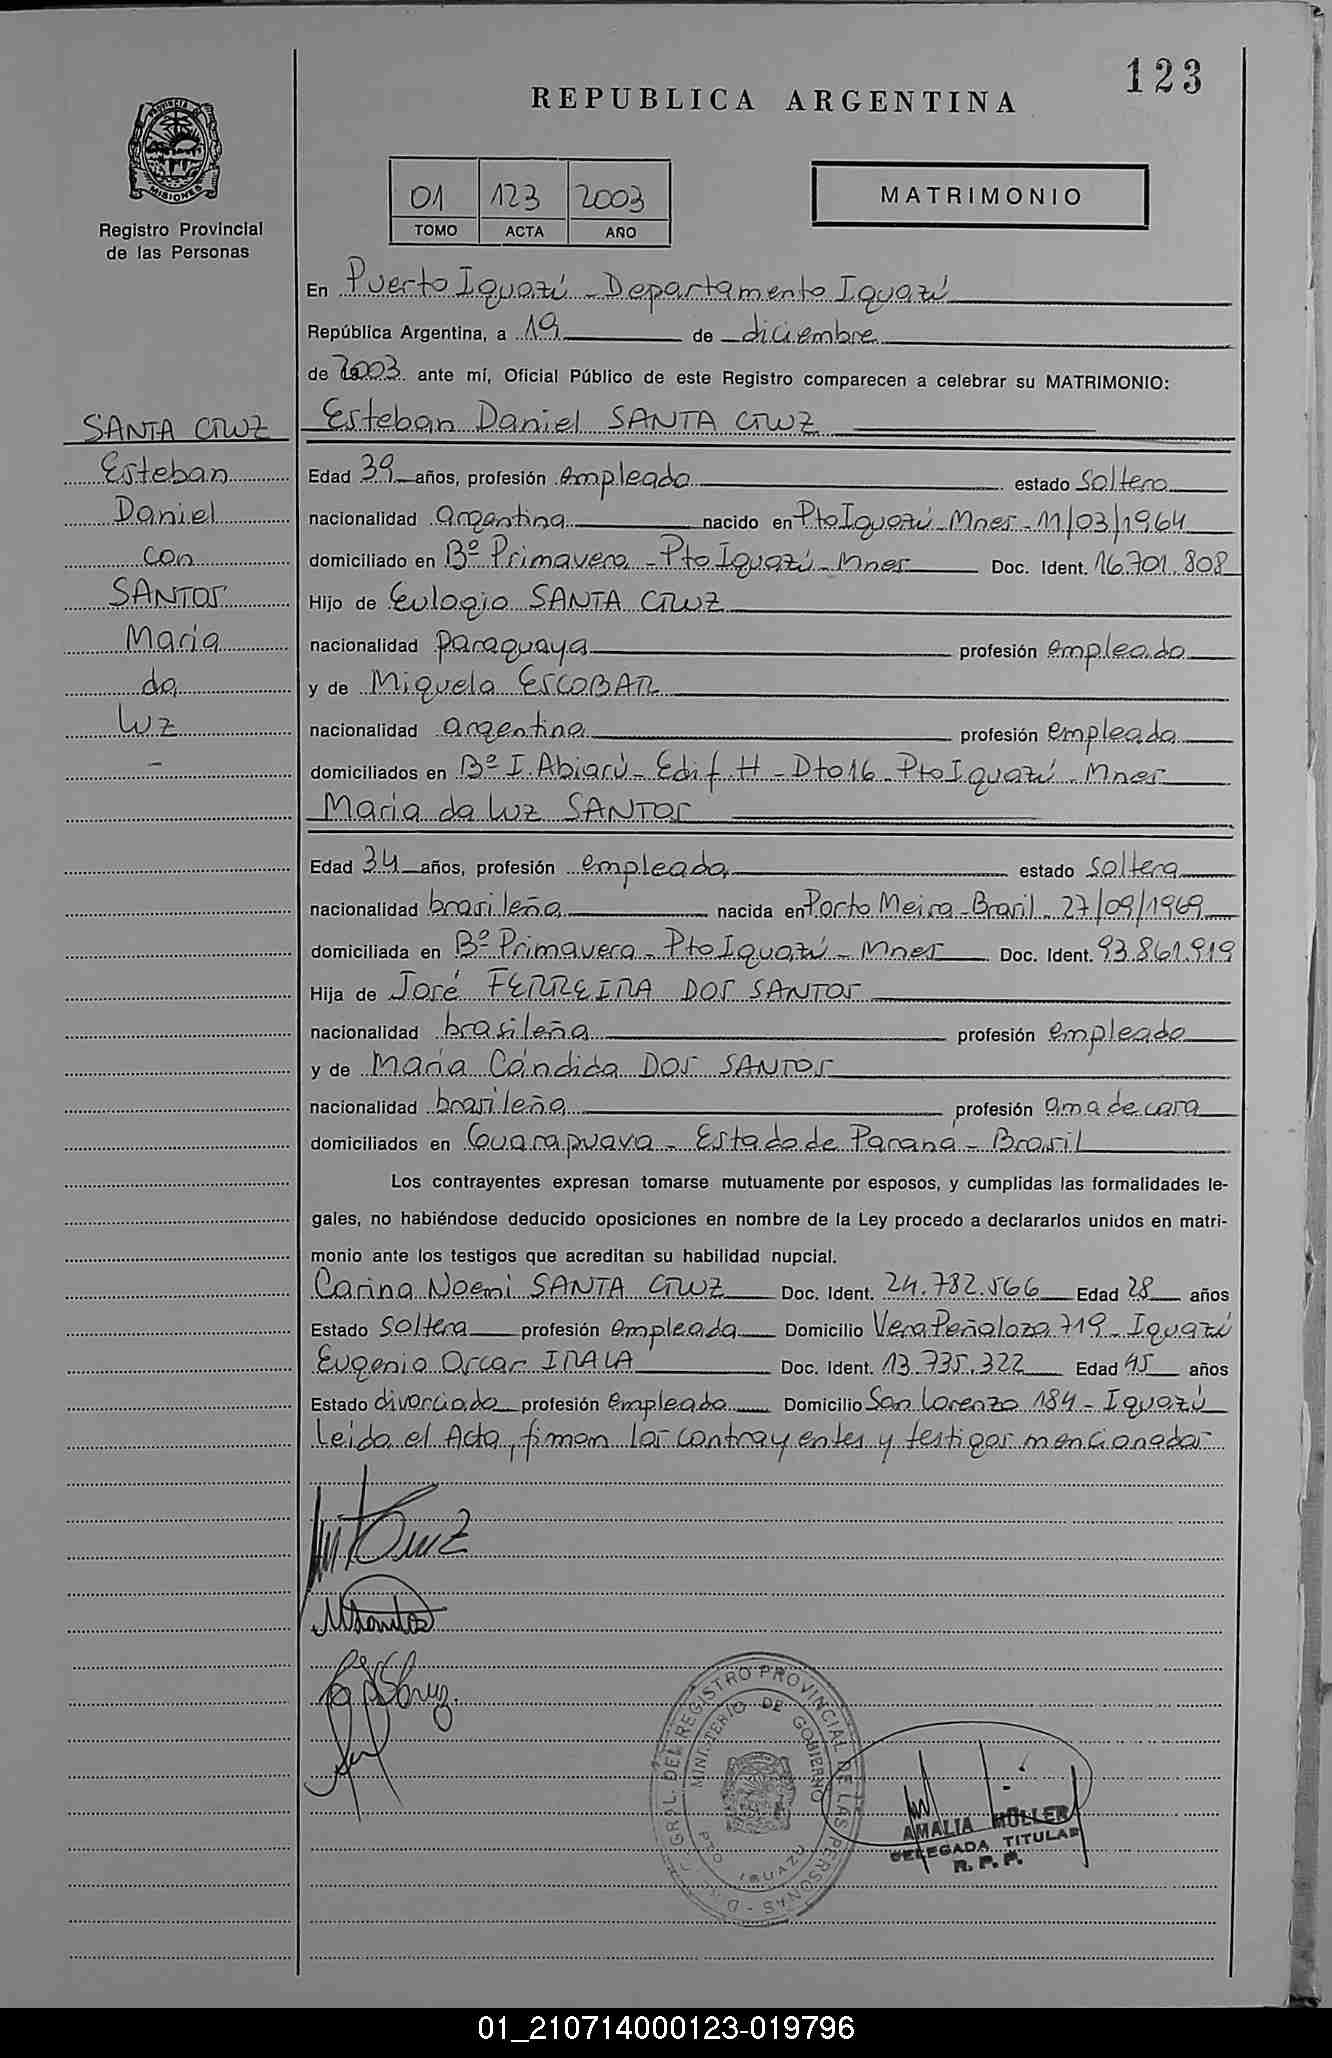 123
REPUBLICA ARGENTINA
PROVINCIA DE
MISIONES
Registro Provincial
de las Personas
01 123 2003
TOMO ACTA AÑO
MATRIMONIO
En Puerto Iguazú - Departamento Iguazú
República Argentina, a 19 de diciembre
de 2003 ante mí, Oficial Público de este Registro comparecen a celebrar su MATRIMONIO:
SANTA CRUZ
Esteban
Daniel
con
SANTOS
Maria
da
Luz
-
Esteban Daniel SANTA CRUZ
Edad 39 años, profesión empleado estado soltero
nacionalidad argentina nacido en Pto Iguazú - Mnes - 11/03/1964
domiciliado en Bº Primavera - Pto Iguazú - Mnes Doc. Ident. 16.701.808
Hijo de Eulogio SANTA CRUZ
nacionalidad paraguaya profesión empleado
y de Miguela ESCOBAR
nacionalidad argentina profesión empleada
domiciliados en Bº I. Abiarú - Edif H - Dto 16 - Pto Iguazú - Mnes
Maria da Luz SANTOS
Edad 34 años, profesión empleada estado soltera
nacionalidad brasileña nacida en Porto Meira - Brasil - 27/09/1969
domiciliada en Bº Primavera - Pto Iguazú - Mnes Doc. Ident. 93.861.919
Hija de José FERREIRA DOS SANTOS
nacionalidad brasileña profesión empleado
y de Maria Cándida DOS SANTOS
nacionalidad brasileña profesión ama de casa
domiciliados en Guarapuava - Estado de Paraná - Brasil
Los contrayentes expresan tomarse mutuamente por esposos, y cumplidas las formalidades le-
gales, no habiéndose deducido oposiciones en nombre de la Ley procedo a declararlos unidos en matri-
monio ante los testigos que acreditan su habilidad nupcial.
Carina Noemi SANTA CRUZ Doc. Ident. 24.782.566 Edad 28 años
Estado soltera profesión empleada Domicilio Vera Peñaloza 719 - Iguazú
Eugenio Oscar IRALA Doc. Ident. 13.735.322 Edad 45 años
Estado divorciado profesión empleado Domicilio San Lorenzo 184 - Iguazú
Leido el Acta, firman los contrayentes y testigos mencionados
MSantos
DEL REGISTRO PROVINCIAL DE LAS PERSONAS
MINISTERIO DE GOBIERNO
PTO IGUAZU
AMALIA MÜLLER
DELEGADA TITULAR
R. P. P.
01_210714000123-019796